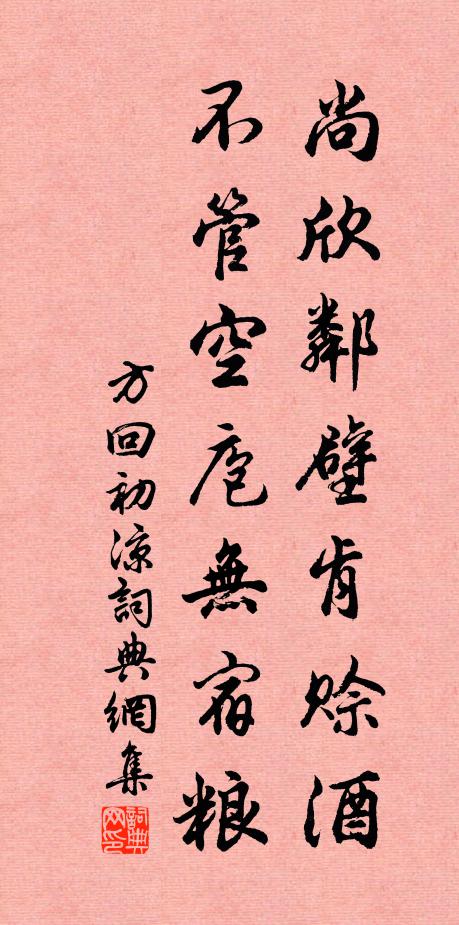 尚欣鄰壁肯賒酒
不管空庖無宿粮
方回初涼詞典網集
詞典网印